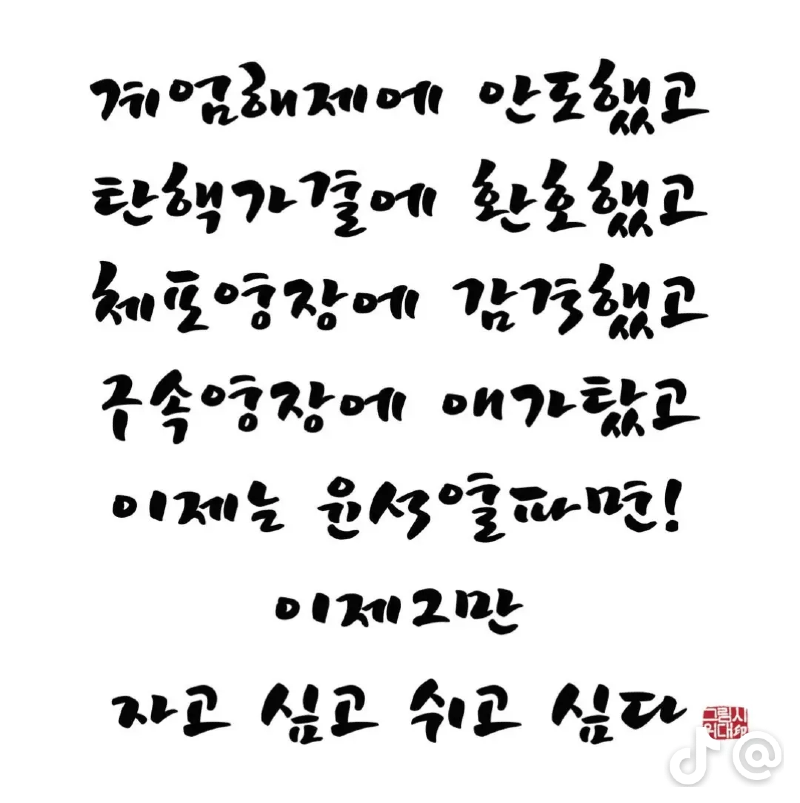 계엄해제에 안도했고
탄핵가결에 환호했고
체포영장에 감격했고
구속영장에 애가탔고
이제는 윤석열파면!
이제그만
자고 싶고 쉬고 싶다